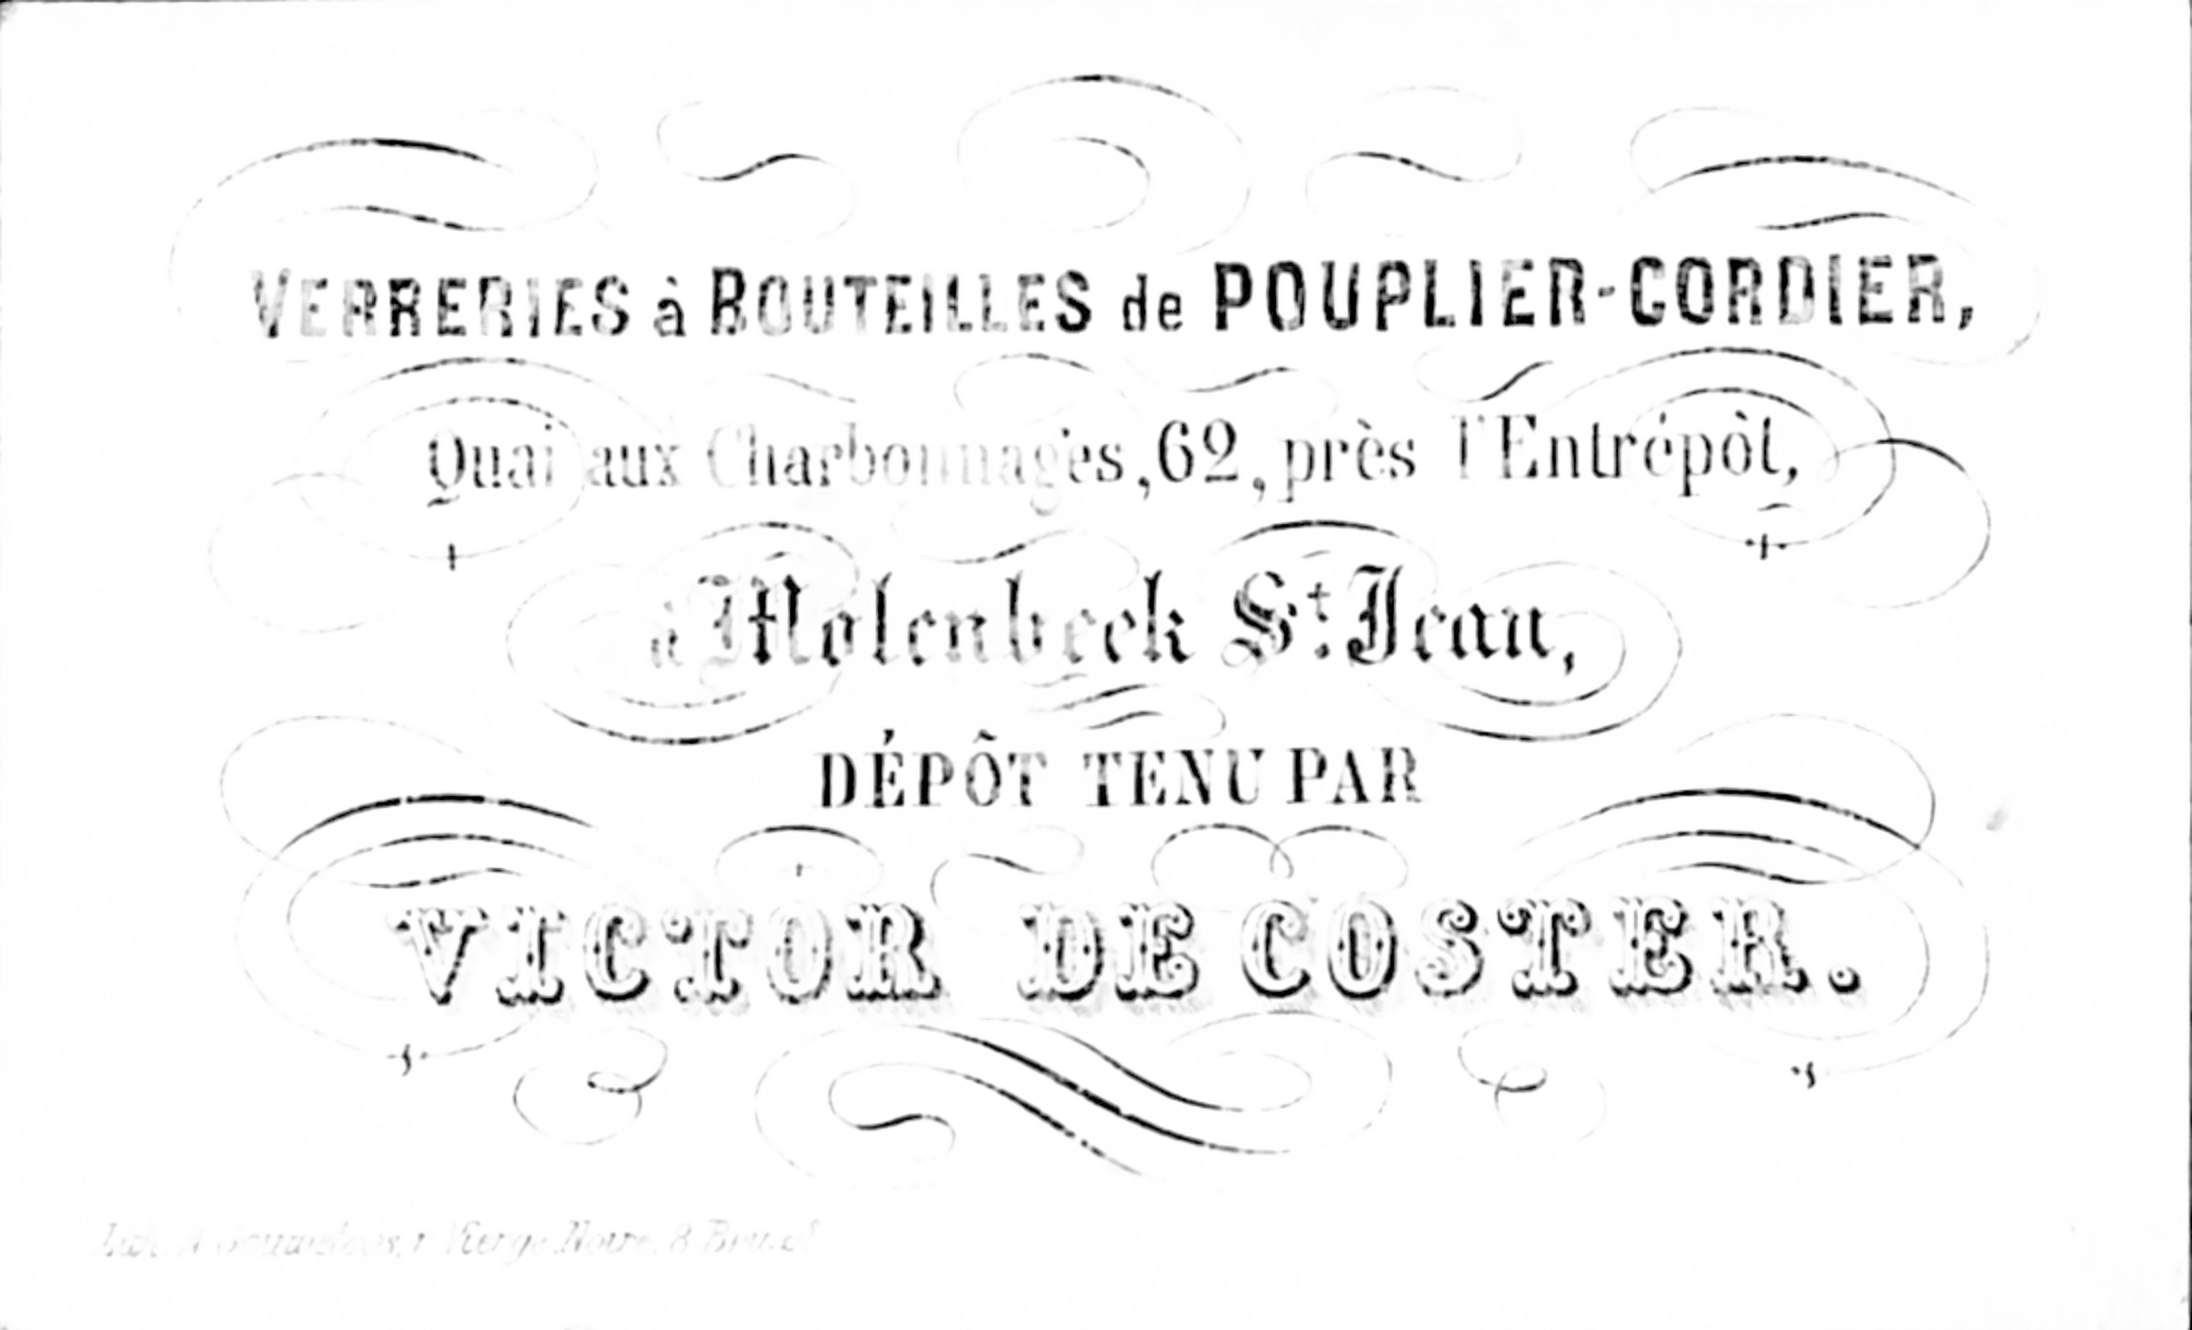 VERRERIES à BOUTEILLES de POUPLIER-CORDIER,
Quai aux Charbonnages, 62, près l'Entrépôt,
à Molenbeek St. Jean,
DÉPÔT TENU PAR
VICTOR DE COSTER.
Lith. r. Vierge Noire, 8 Brux.